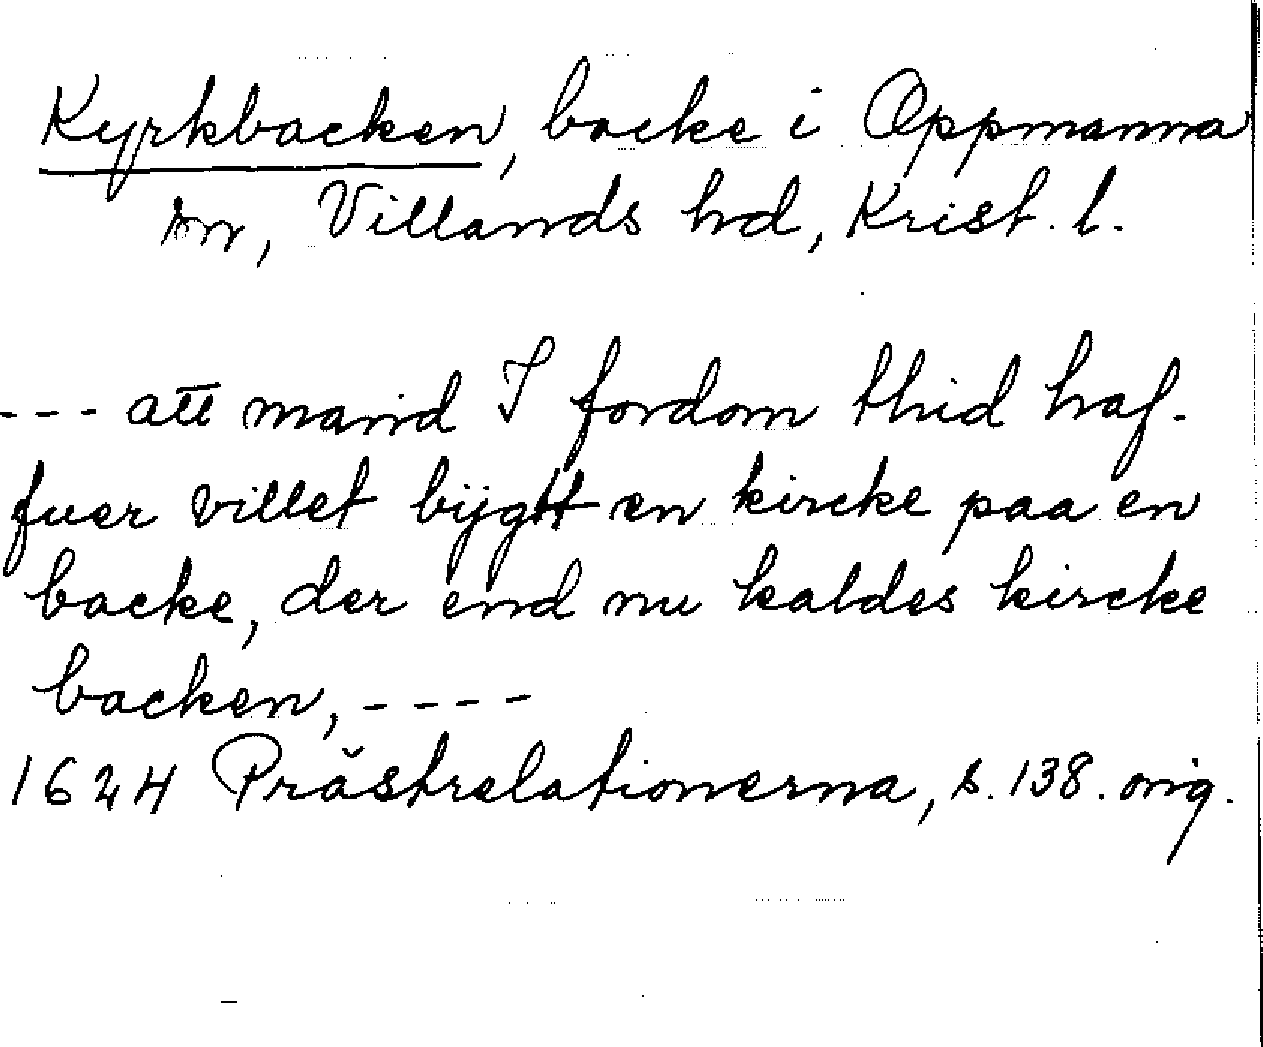 Kyrkbacken, backe i Oppmanna
sn, Villands hd, Krist. l.
--- att mand I fordom thid haf-
fuer villet bÿgtt en kircke paa en
backe, der end nu kaldes kircke
backen, ----
1624 Prästrelationerna, s. 138. orig.